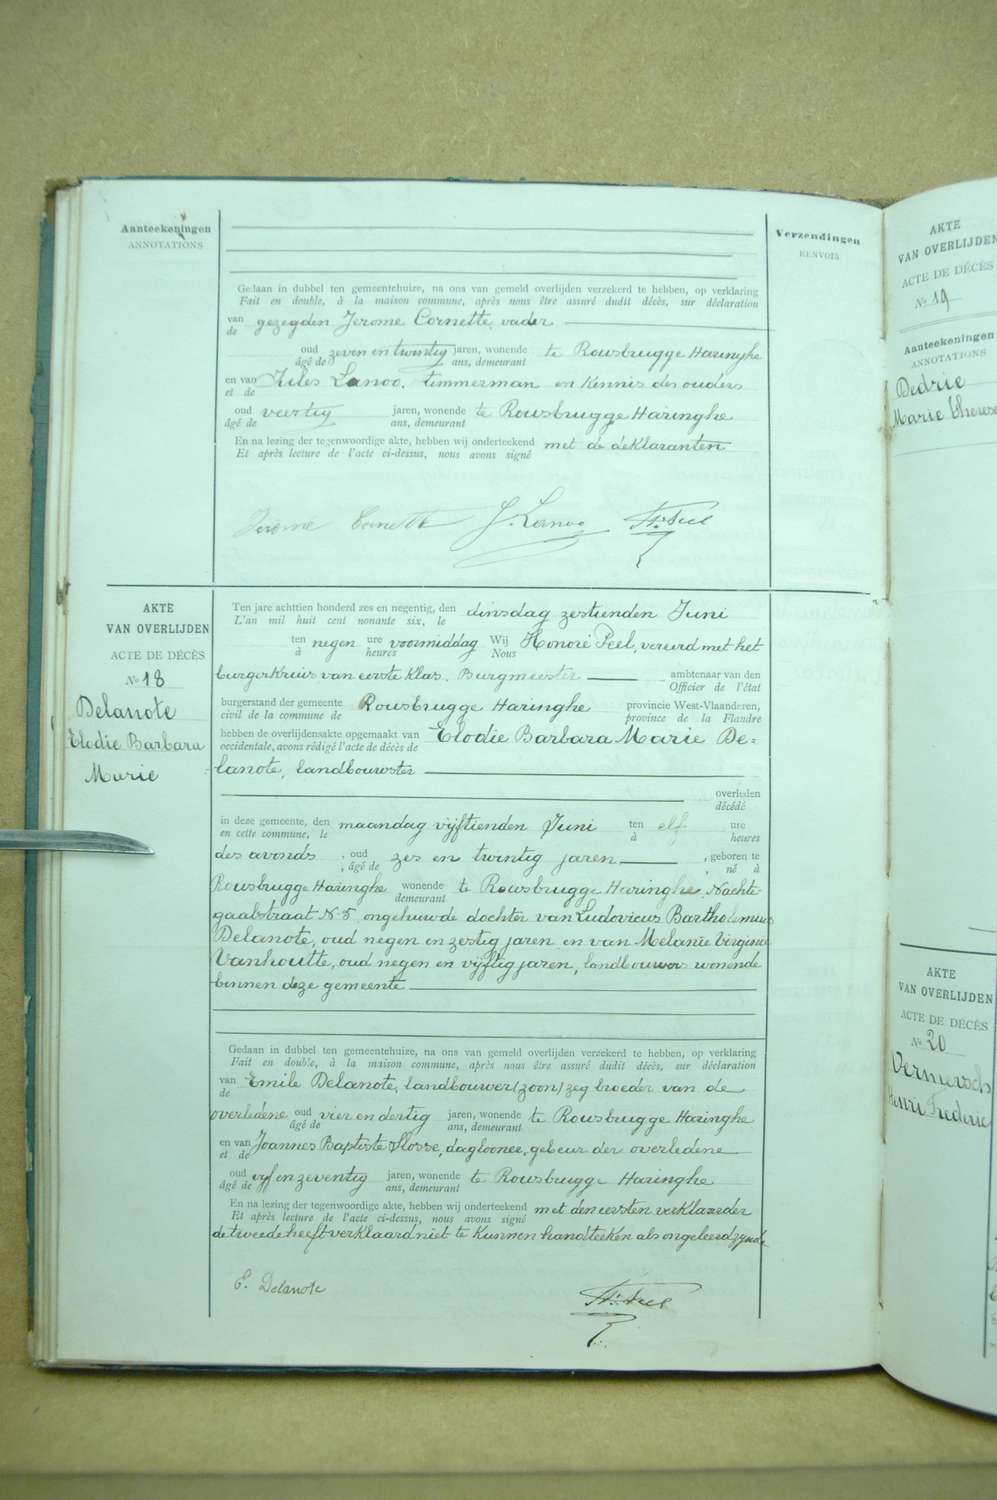 Aanteekeningen
ANNOTATIONS
Verzendingen
RENVOIS
Gedaan in dubbel ten gemeentehuize, na ons van gemeld overlijden verzekerd te hebben, op verklaring
Fait en double, à la maison commune, après nous être assuré dudit décès, sur déclaration
van gezegden Jerome Cornette, vader
de
oud zeven en twintig jaren, wonende te Rousbrugge Haringhe
âgé de ans, demeurant
en van Jules Lanoo, timmerman en kennis des ouders
et de
oud veertig jaren, wonende te Rousbrugge Haringhe
âgé de ans, demeurant
En na lezing der tegenwoordige akte, hebben wij onderteekend met de deklaranten
Et après lecture de l'acte ci-dessus, nous avons signé
Jerome Cornette J. Lanoo H. Peel
AKTE
VAN OVERLIJDEN
ACTE DE DÉCÈS
No 18
Delanote
Elodie Barbara
Marie
Ten jare achttien honderd zes en negentig, den dinsdag zestienden Juni
L'an mil huit cent nonante six, le
ten negen ure voormiddag Wij Honoré Peel, vereerd met het
à heures Nous
burgerkruis van eerste klas, Burgmeester ambtenaar van den
Officier de l'état
burgerstand der gemeente Rousbrugge Haringhe provincie West-Vlaanderen,
civil de la commune de province de la Flandre
hebben de overlijdensakte opgemaakt van Elodie Barbara Marie De=
occidentale, avons rédigé l'acte de décès de
lanote, landbouwster
overleden
décédé
in deze gemeente, den maandag vijftienden Juni ten elf ure
en cette commune, le à heures
des avonds, oud zes en twintig jaren, geboren te
âgé de né à
Rousbrugge Haringhe wonende te Rousbrugge Haringhe, Nachte-
demeurant
gaalstraat N. 5, ongehuwde dochter van Ludovicus Bartholemius
Delanote, oud negen en zestig jaren en van Melanie Virginie
Vanhoutte, oud negen en vijftig jaren, landbouwers wonende
binnen deze gemeente
Gedaan in dubbel ten gemeentehuize, na ons van gemeld overlijden verzekerd te hebben, op verklaring
Fait en double, à la maison commune, après nous être assuré dudit décès, sur déclaration
van Emile Delanote, landbouwer (zoon) zeg broeder van de
de
overledene oud vier en dertig jaren, wonende te Rousbrugge Haringhe
âgé de ans, demeurant
en van Joannes Baptiste Slosse, daglooner, gebeur der overledene
et de
oud vijf en zeventig jaren, wonende te Rousbrugge Haringhe
âgé de ans, demeurant
En na lezing der tegenwoordige akte, hebben wij onderteekend met den eersten verklaarder
Et après lecture de l'acte ci-dessus, nous avons signé
de tweede heeft verklaard niet te kunnen handteeken als ongeleerd zijnde
E. Delanote H. Peel
AKTE
VAN OVERLIJDEN
ACTE DE DÉCÈS
No 19
Aanteekeningen
ANNOTATIONS
Dedrie
Marie Therese
AKTE
VAN OVERLIJDEN
ACTE DE DÉCÈS
No 20
Vermersch
Henri Frederic